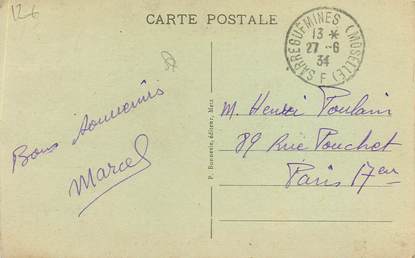 126
CARTE POSTALE
SARREGUEMINES (MOSELLE)
13 *
27 - 6
34
F
Bons souvenirs
Marcel
éditeur, Metz
M. Henri Poulain
89 Rue Pouchet
Paris 17en